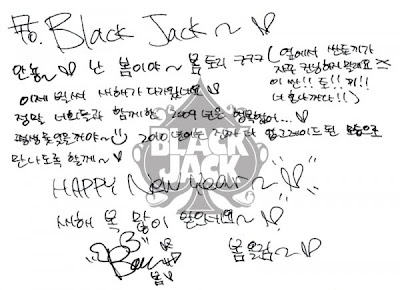 To. Black Jack~♡
안뇽~♡ 난 봄이야~ 봄토리 ㅋㅋㅋ (옆에서 싼토끼가
자꾸 컨닝하지말래요
이 싼!! 토!! 끼!!
너 혼나까다!!)
이제 벌써 새해가 다가왔네요♡
정말 너희들과 함께한 2009년은 영원할꺼...
평생못잊을꺼야~ 2010년에는 진짜 더 업그레이드된 모습으로
만나도록 할께~♡
BLACK
JACK
HAPPY New Year~♡
새해 복 많이 받으세요~♡
Bom
봄
봄올림~♡